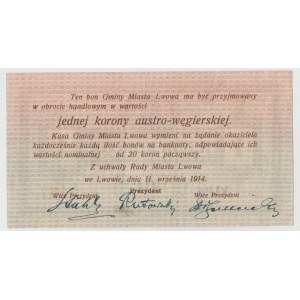 Ten bon Gminy Miasta Lwowa ma być przyjmowany
w obrocie handlowym w wartości
jednej korony austro-węgierskiej.
Kasa Gminy Miasta Lwowa wymieni na żądanie okaziciela
każdocześnie każdą ilość bonów na banknoty, odpowiadające ich
wartości nominalnej od 20 koron począwszy.
Z uchwały Rady Miasta Lwowa
we Lwowie, dnia 11 września 1914.
Wice Prezydent Prezydent Wice Prezydent
Stahl Rutowski